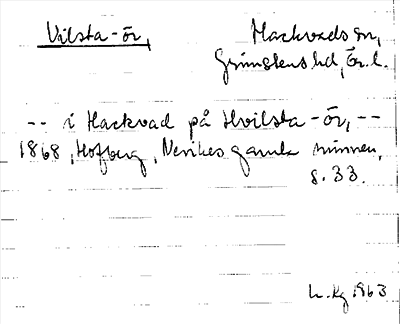 Vilsta-ör, Hackvads sn,
Grimstens hd, Ör. l.
-- i Hackvad på Hvilsta-ör, --
1868, Hofberg, Nerikes gamla minnen,
s. 33.
1963